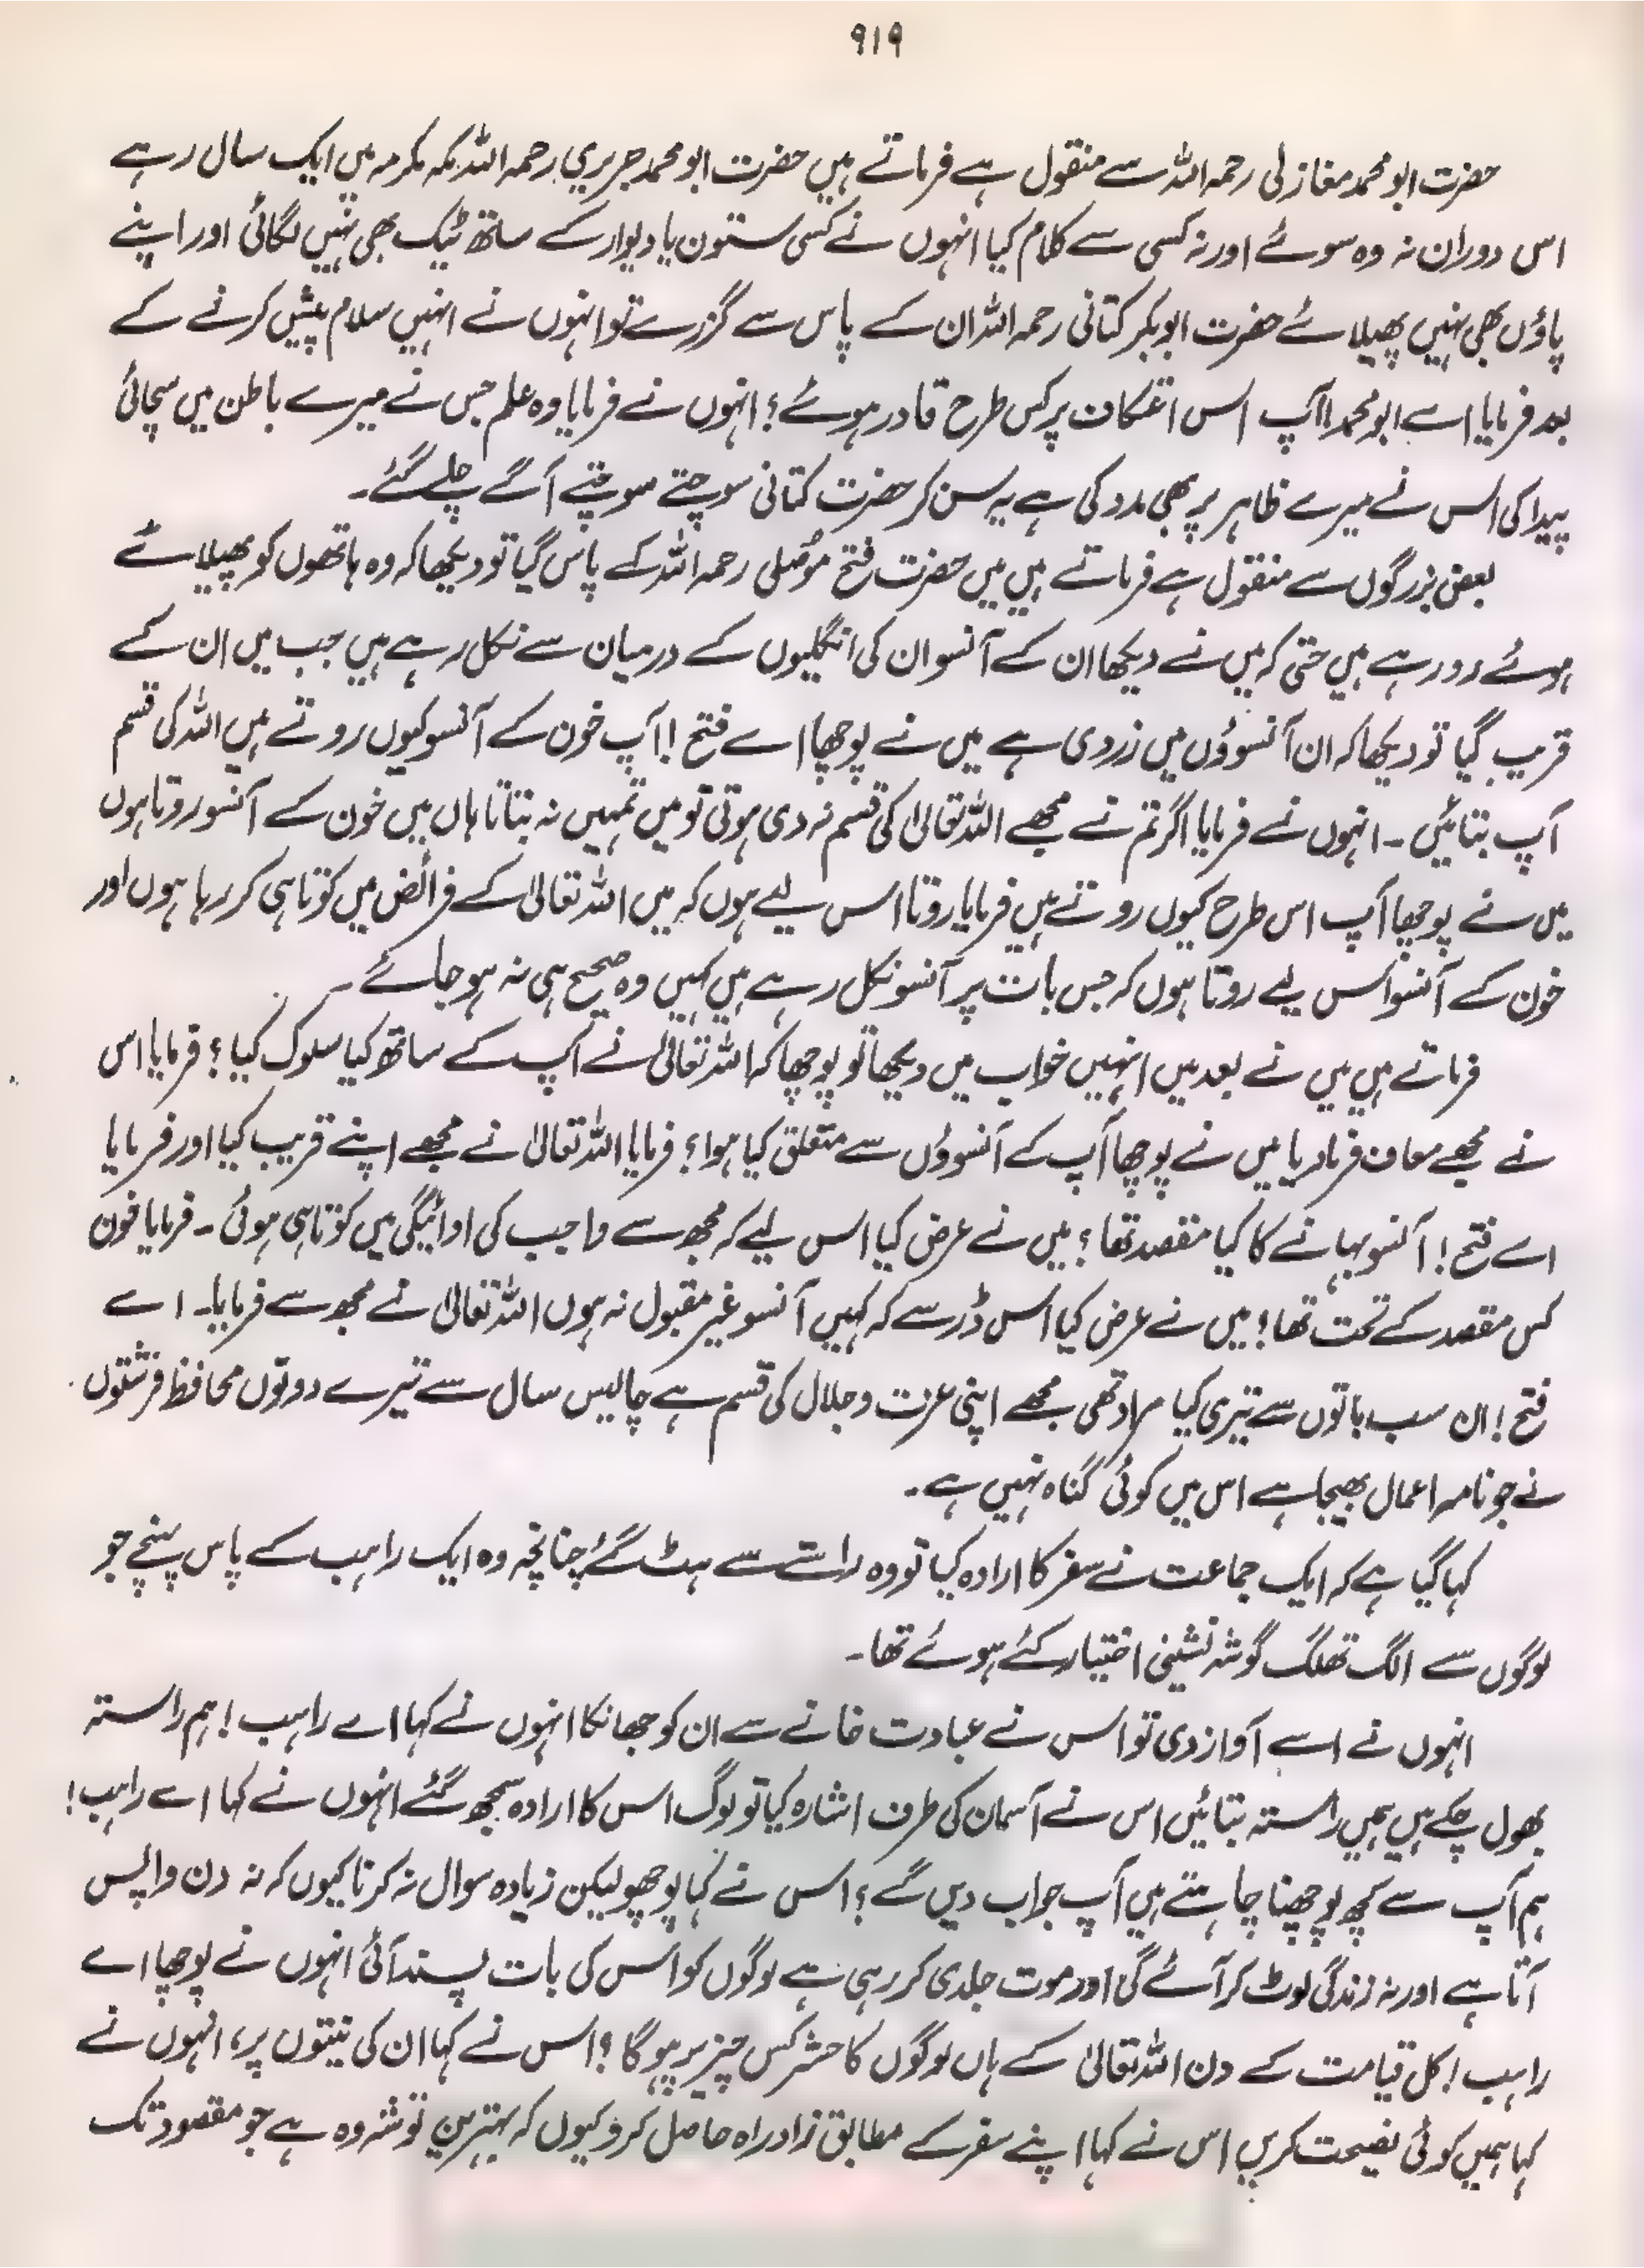 ۹۱۹
حضرت ابو محمد مغازلی رحمہ اللہ سے منقول ہے فرماتے ہیں حضرت ابو محمد جریری رحمہ اللہ مکہ مکرمہ میں ایک سال رہے
اس دوران نہ وہ سوئے اور نہ کسی سے کلام کیا انہوں نے کسی ستون یا دیوار کے ساتھ ٹیک بھی نہیں لگائی اور اپنے
پاؤں بھی نہیں پھیلائے حضرت ابوبکر کتانی رحمہ اللہ ان کے پاس سے گزرے تو انہوں نے انہیں سلام پیش کرنے کے
بعد فرمایا اے ابو محمد! آپ اس اعتکاف پر کس طرح قادر ہوئے؟ انہوں نے فرمایا وہ علم جس نے میرے باطن میں سچائی
پیدا کی اس نے میرے ظاہر پر بھی مدد کی ہے یہ سن کر حضرت کتانی سوچتے سوچتے آگے چلے گئے۔
بعض بزرگوں سے منقول ہے فرماتے ہیں میں حضرت فتح موصلی رحمہ اللہ کے پاس گیا تو دیکھا کہ وہ ہاتھوں کو پھیلائے
ہوئے رو رہے ہیں حتی کہ میں نے دیکھا ان کے آنسو ان کی انگلیوں کے درمیان سے نکل رہے ہیں جب میں ان کے
قریب گیا تو دیکھا کہ ان آنسوؤں میں زردی ہے میں نے پوچھا اے فتح! آپ خون کے آنسو کیوں روتے ہیں اللہ کی قسم
آپ بتائیں۔ انہوں نے فرمایا اگر تم نے مجھے اللہ تعالیٰ کی قسم نہ دی ہوتی تو میں تمہیں نہ بتاتا ہاں میں خون کے آنسو روتا ہوں
میں نے پوچھا آپ اس طرح کیوں روتے ہیں فرمایا روتا اس لیے ہوں کہ میں اللہ تعالیٰ کے فرائض میں کوتاہی کر رہا ہوں اور
خون کے آنسو اس لیے روتا ہوں کہ جس بات پر آنسو نکل رہے ہیں کہیں وہ صحیح ہی نہ ہو جائے۔
فرماتے ہیں میں نے بعد میں انہیں خواب میں دیکھا تو پوچھا کہ اللہ تعالیٰ نے آپ کے ساتھ کیا سلوک کیا؟ فرمایا اس
نے مجھے معاف فرما دیا میں نے پوچھا آپ کے آنسوؤں سے متعلق کیا ہوا؟ فرمایا اللہ تعالیٰ نے مجھے اپنے قریب کیا اور فرمایا
اے فتح! آنسو بہانے کا کیا مقصد تھا؟ میں نے عرض کیا اس لیے کہ مجھ سے واجب کی ادائیگی میں کوتاہی ہوئی۔ فرمایا خون
کس مقصد کے تحت تھا؟ میں نے عرض کیا اس ڈر سے کہ کہیں آنسو غیر مقبول نہ ہوں اللہ تعالیٰ نے مجھ سے فرمایا۔ اے
فتح! ان سب باتوں سے تیری کیا مراد تھی مجھے اپنی عزت و جلال کی قسم ہے چالیس سال سے تیرے دونوں محافظ فرشتوں
نے جو نامہ اعمال بھیجا ہے اس میں کوئی گناہ نہیں ہے۔
کہا گیا ہے کہ ایک جماعت نے سفر کا ارادہ کیا تو وہ راستے سے ہٹ گئے چنانچہ وہ ایک راہب کے پاس پہنچے جو
لوگوں سے الگ تھلگ گوشہ نشینی اختیار کئے ہوئے تھا۔
انہوں نے اسے آواز دی تو اس نے عبادت خانے سے ان کو جھانکا انہوں نے کہا اے راہب! ہم راستہ
بھول چکے ہیں ہمیں راستہ بتائیں اس نے آسمان کی طرف اشارہ کیا تو لوگ اس کا ارادہ سمجھ گئے انہوں نے کہا اے راہب!
ہم آپ سے کچھ پوچھنا چاہتے ہیں آپ جواب دیں گے؟ اس نے کہا پوچھو لیکن زیادہ سوال نہ کرنا کیوں کہ نہ دن واپس
آتا ہے اور نہ زندگی لوٹ کر آئے گی اور موت جلدی کر رہی ہے لوگوں کو اس کی بات پسند آئی انہوں نے پوچھا اے
راہب! کل قیامت کے دن اللہ تعالیٰ کے ہاں لوگوں کا حشر کس چیز پر ہو گا؟ اس نے کہا ان کی نیتوں پر، انہوں نے
کہا ہمیں کوئی نصیحت کریں اس نے کہا اپنے سفر کے مطابق زاد راہ حاصل کرو کیوں کہ بہترین توشہ وہ ہے جو مقصود تک